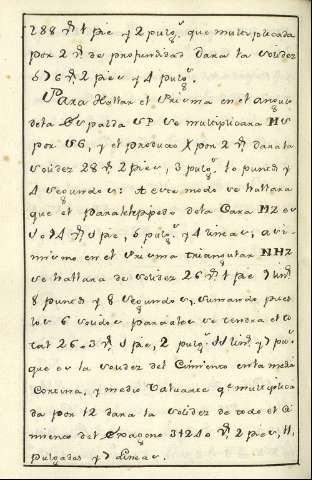 288 v.s 1 pie y 2 pulg.s que multiplicada
por 2 v.s de profundidad dara la solidez
576 v.s 2 pies y 4 pulg.s
Para Hallar el Prisma en el angulo
dela Espalda SP se multiplicara MS
por SG, y el producto X por 2 v.s dara la
solidez 28 v.s 2 pies, 3 pulg.s 10 puntos y
4 segundos: A este modo se hallara
que el paralelepipedo dela Cara HZ es
v.s 1 pie, 6 pulg.s y 4 lineas, asi-
mismo en el Prisma triangular NHZ
se hallara de solidez 26 v.s 1 pie 7 lin.s
8 puntos y 8 segundos y, sumando pues
los 6 solidos paralelos se tendra el to
tal 26 1 pie, 2 pulg.s 11 lin.s y 7 pu.s
que es la solidez del Cimiento en la media
Cortina, y medio Valuarte q.e multiplica
da por 12 dara la solidez de todo el Ci
miento del Exagono 31240 v.s 2 pies, 11,
pulgadas y 7 lineas.